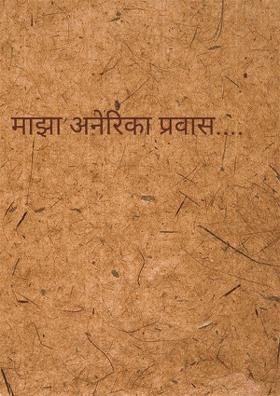 माझा अनेरिका प्रवास....